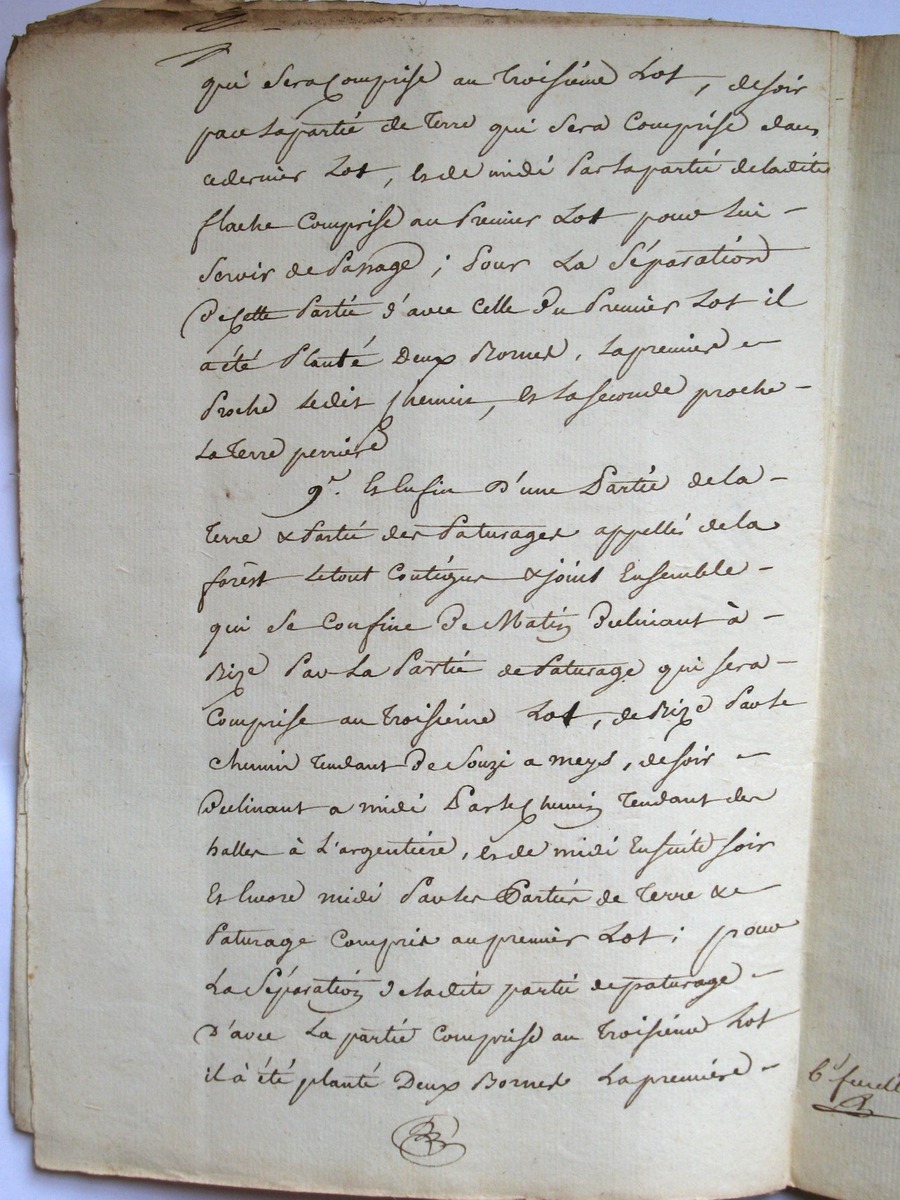 qui sera comprise au troisième Lot, de soir
par la partie de terre qui sera comprise dans
ce dernier Lot, et de midi par la partie de ladite
flache comprise au premier Lot pour lui -
servir de passage ; pour la séparation
de cette partie d'avec celle du premier Lot il
a été planté deux bornes, la première -
proche ledit chemin, et la seconde proche -
la terre perriere
9°. Et enfin d'une partie de la -
terre & partie des paturages appellés de la
forêst le tout contigus & joint ensemble -
qui se confine de matin declinant à -
bize par la partie de paturage qui sera -
comprise au troisième Lot, de bize par le
chemin tendant de Souzi a meys, de soir -
declinant a midi par le chemin tendant des
halles à L'argentière, et de midi ensuite soir
et encore midi par les parties de terre & de
paturage compris au premier Lot ; pour
la séparation de ladite partie de paturage -
d'avec la partie comprise au troisième Lot
il à été planté deux bornes la première -